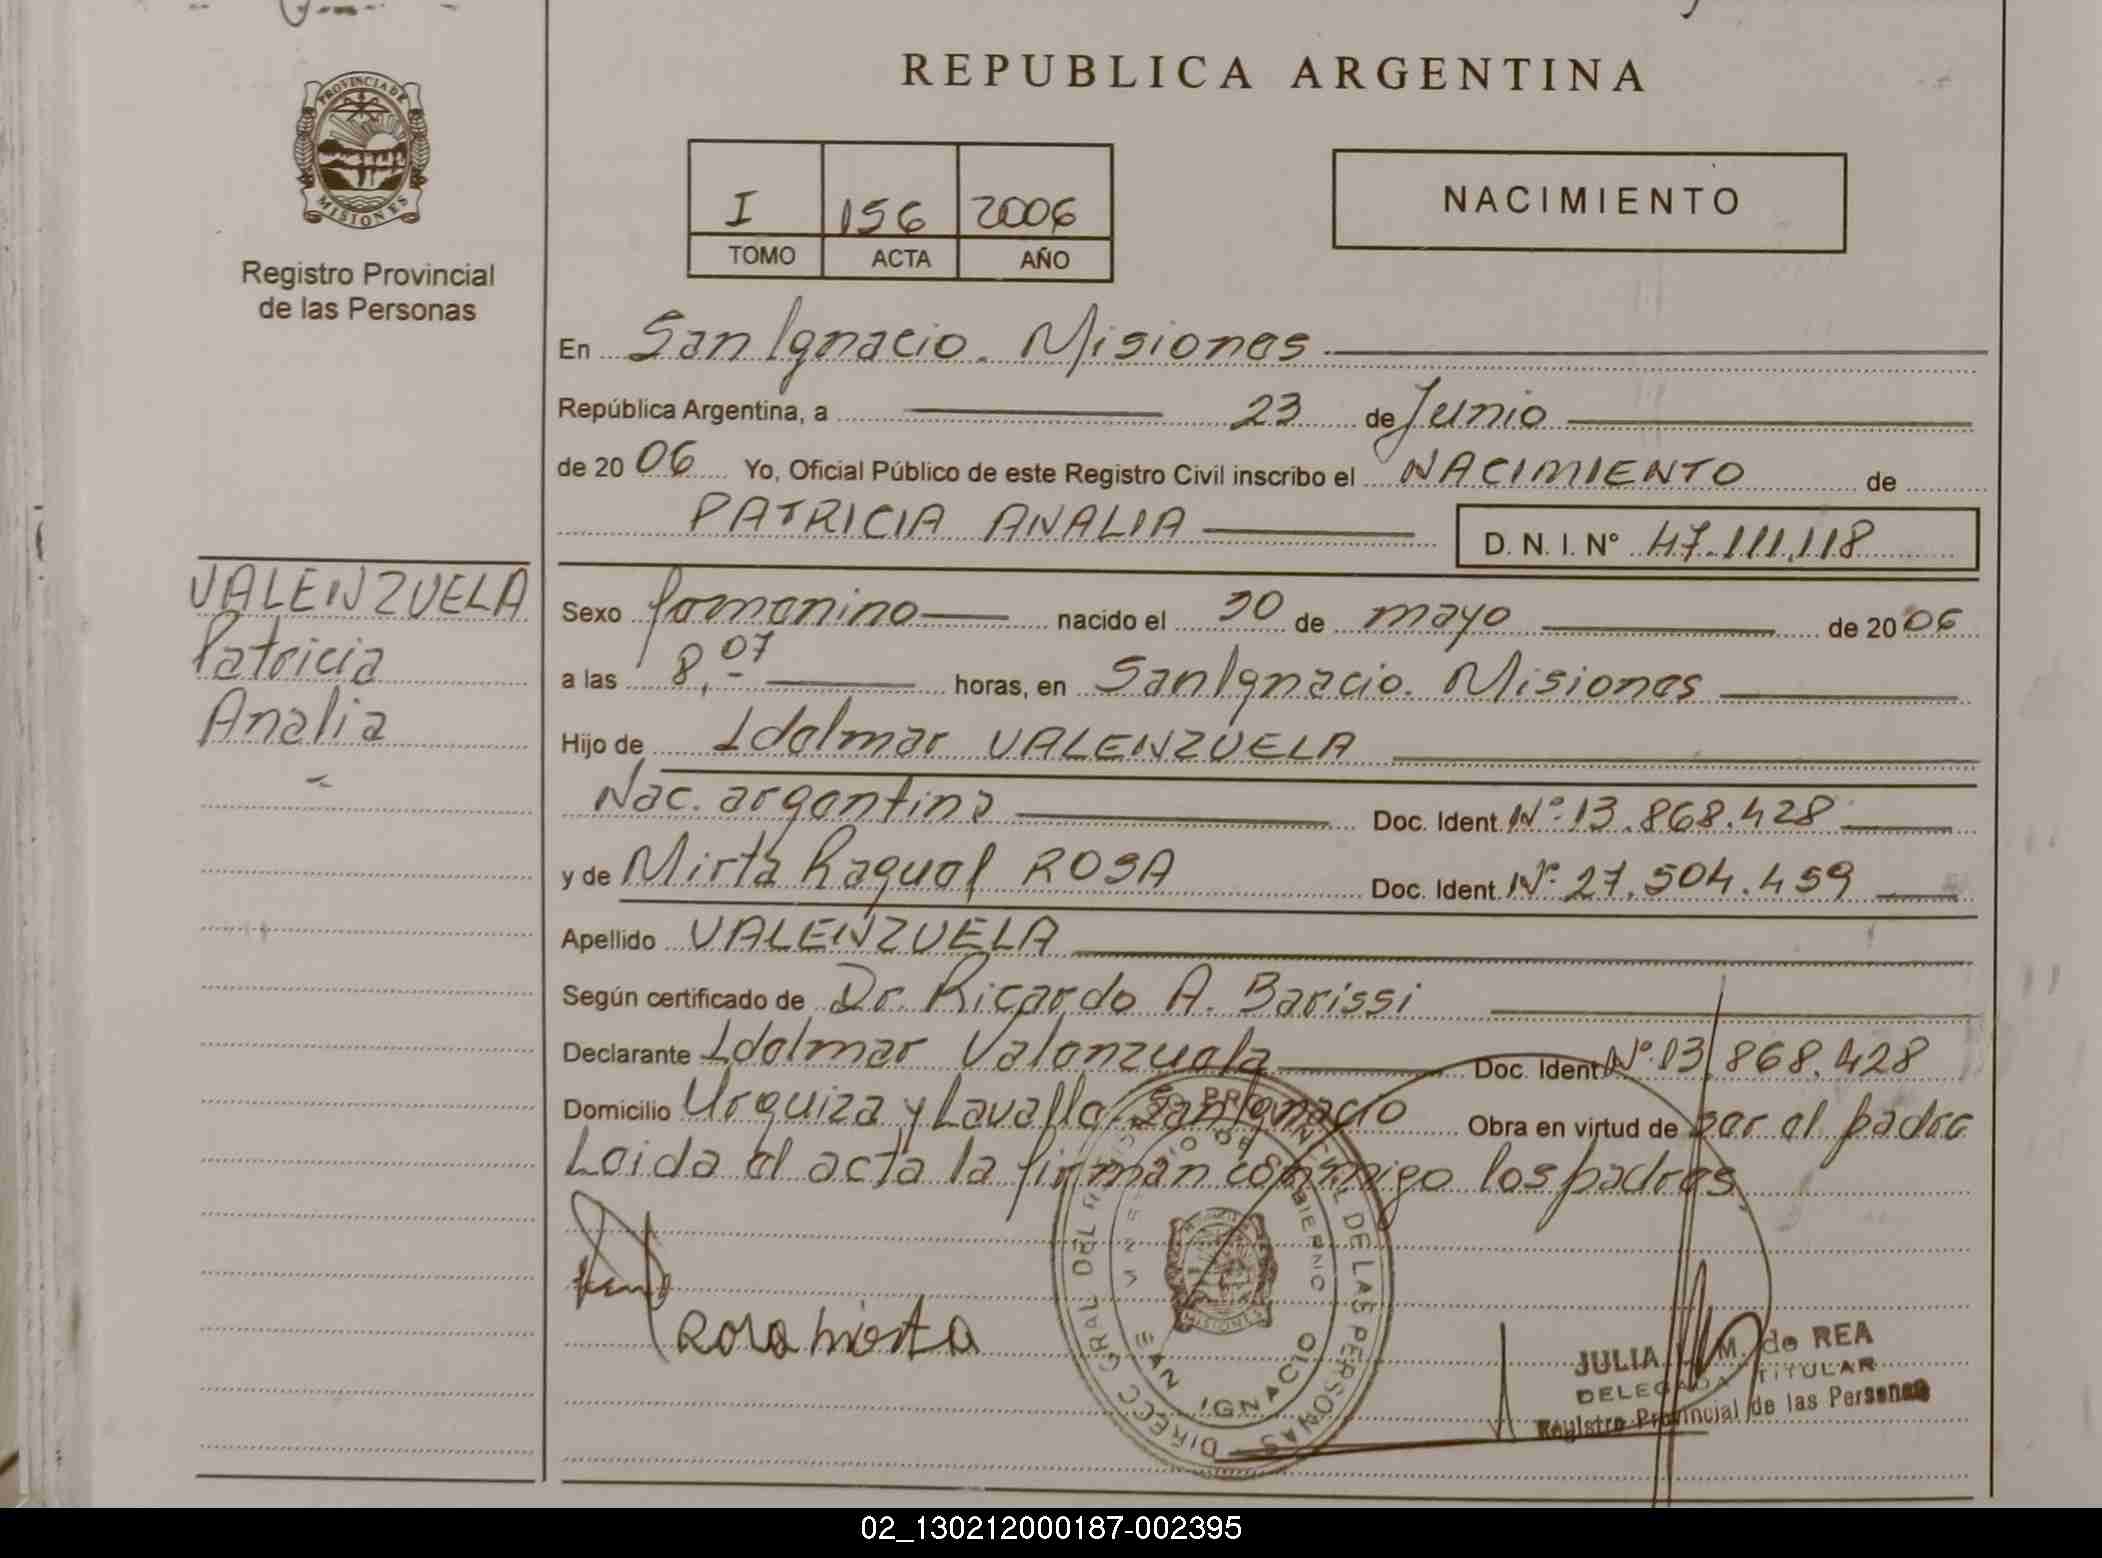 PROVINCIA DE
MISIONES
Registro Provincial
de las Personas
VALENZUELA
Patricia
Analia
REPUBLICA ARGENTINA
I 156 2006
TOMO ACTA AÑO
NACIMIENTO
En San Ignacio. Misiones
República Argentina, a 23 de Junio
de 2006 Yo, Oficial Público de este Registro Civil inscribo el NACIMIENTO de
PATRICIA ANALIA D. N. I. N° 47.111.118
Sexo femenino nacido el 30 de mayo de 2006
a las 8,07 horas, en San Ignacio. Misiones
Hijo de Idelmar VALENZUELA
Nac. argentina Doc. Ident. N°: 13.868.428
y de Mirta Raquel ROSA Doc. Ident. N°: 27.504.459
Apellido VALENZUELA
Según certificado de Dr. Ricardo A. Barissi
Declarante Idelmar Valenzuela Doc. Ident. N°: 13.868.428
Domicilio Urquiza y Lavalle San Ignacio Obra en virtud de ser el padre
Leida el acta la firman conmigo los padres.
Rosa mirta
DIRECC GRAL DEL PROVINCIAL DE LAS PERSONAS
SAN IGNACIO
MISIONES
JULIA M. de REA
DELEGADA TITULAR
Registro Provincial de las Personas
02_130212000187-002395